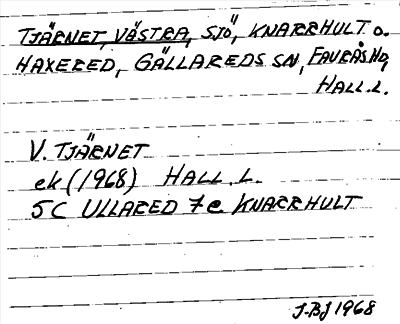 TJÄRNET, VÄSTRA, SJÖ, KNARRHULT O.
HAXERED, GÄLLAREDS SN, FAURÅS HD,
HALL.L.
V. TJÄRNET
ek (1968) HALL.L.
5C ULLARED 7e KNARRHULT
J-BJ 1968